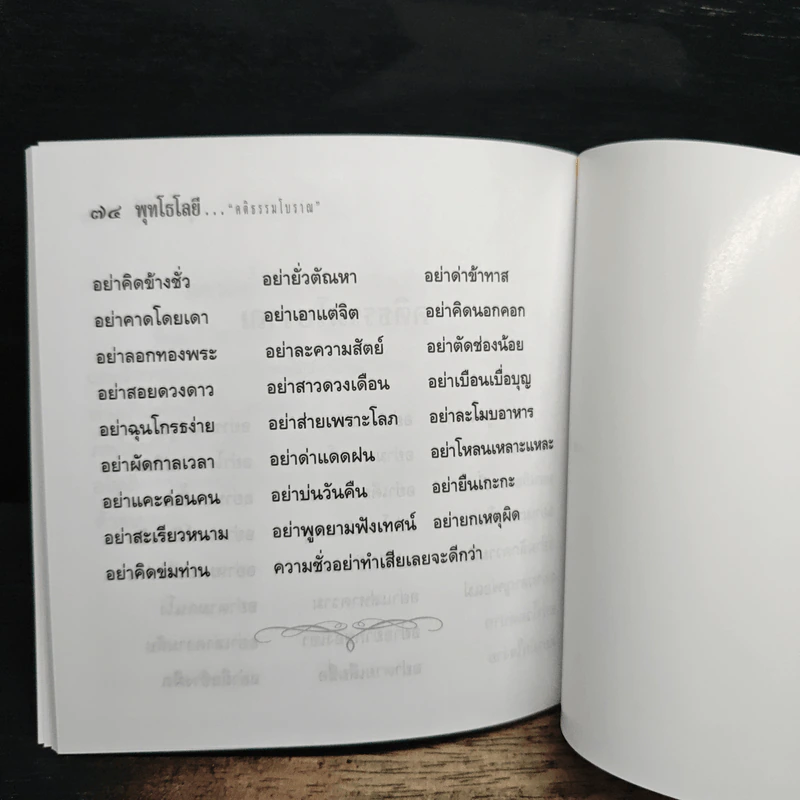 ๗๔ พุทโธโลยี... "คติธรรมโบราณ"
อย่าคิดข้างชั่ว อย่ายั่วตัณหา อย่าด่าข้าทาส
อย่าคาดโดยเดา อย่าเอาแต่จิต อย่าคิดนอกคอก
อย่าลอกทองพระ อย่าละความสัตย์ อย่าตัดช่องน้อย
อย่าสอยดวงดาว อย่าสาวดวงเดือน อย่าเบือนเบื่อบุญ
อย่าฉุนโกรธง่าย อย่าส่ายเพราะโลภ อย่าละโมบอาหาร
อย่าผัดกาลเวลา อย่าด่าแดดฝน อย่าโหลนเหลาะแหละ
อย่าแคะค่อนคน อย่าบ่นวันคืน อย่ายืนเกะกะ
อย่าสะเรียวหนาม อย่าพูดยามฟังเทศน์ อย่ายกเหตุผิด
อย่าคิดข่มท่าน ความชั่วอย่าทำเสียเลยจะดีกว่า